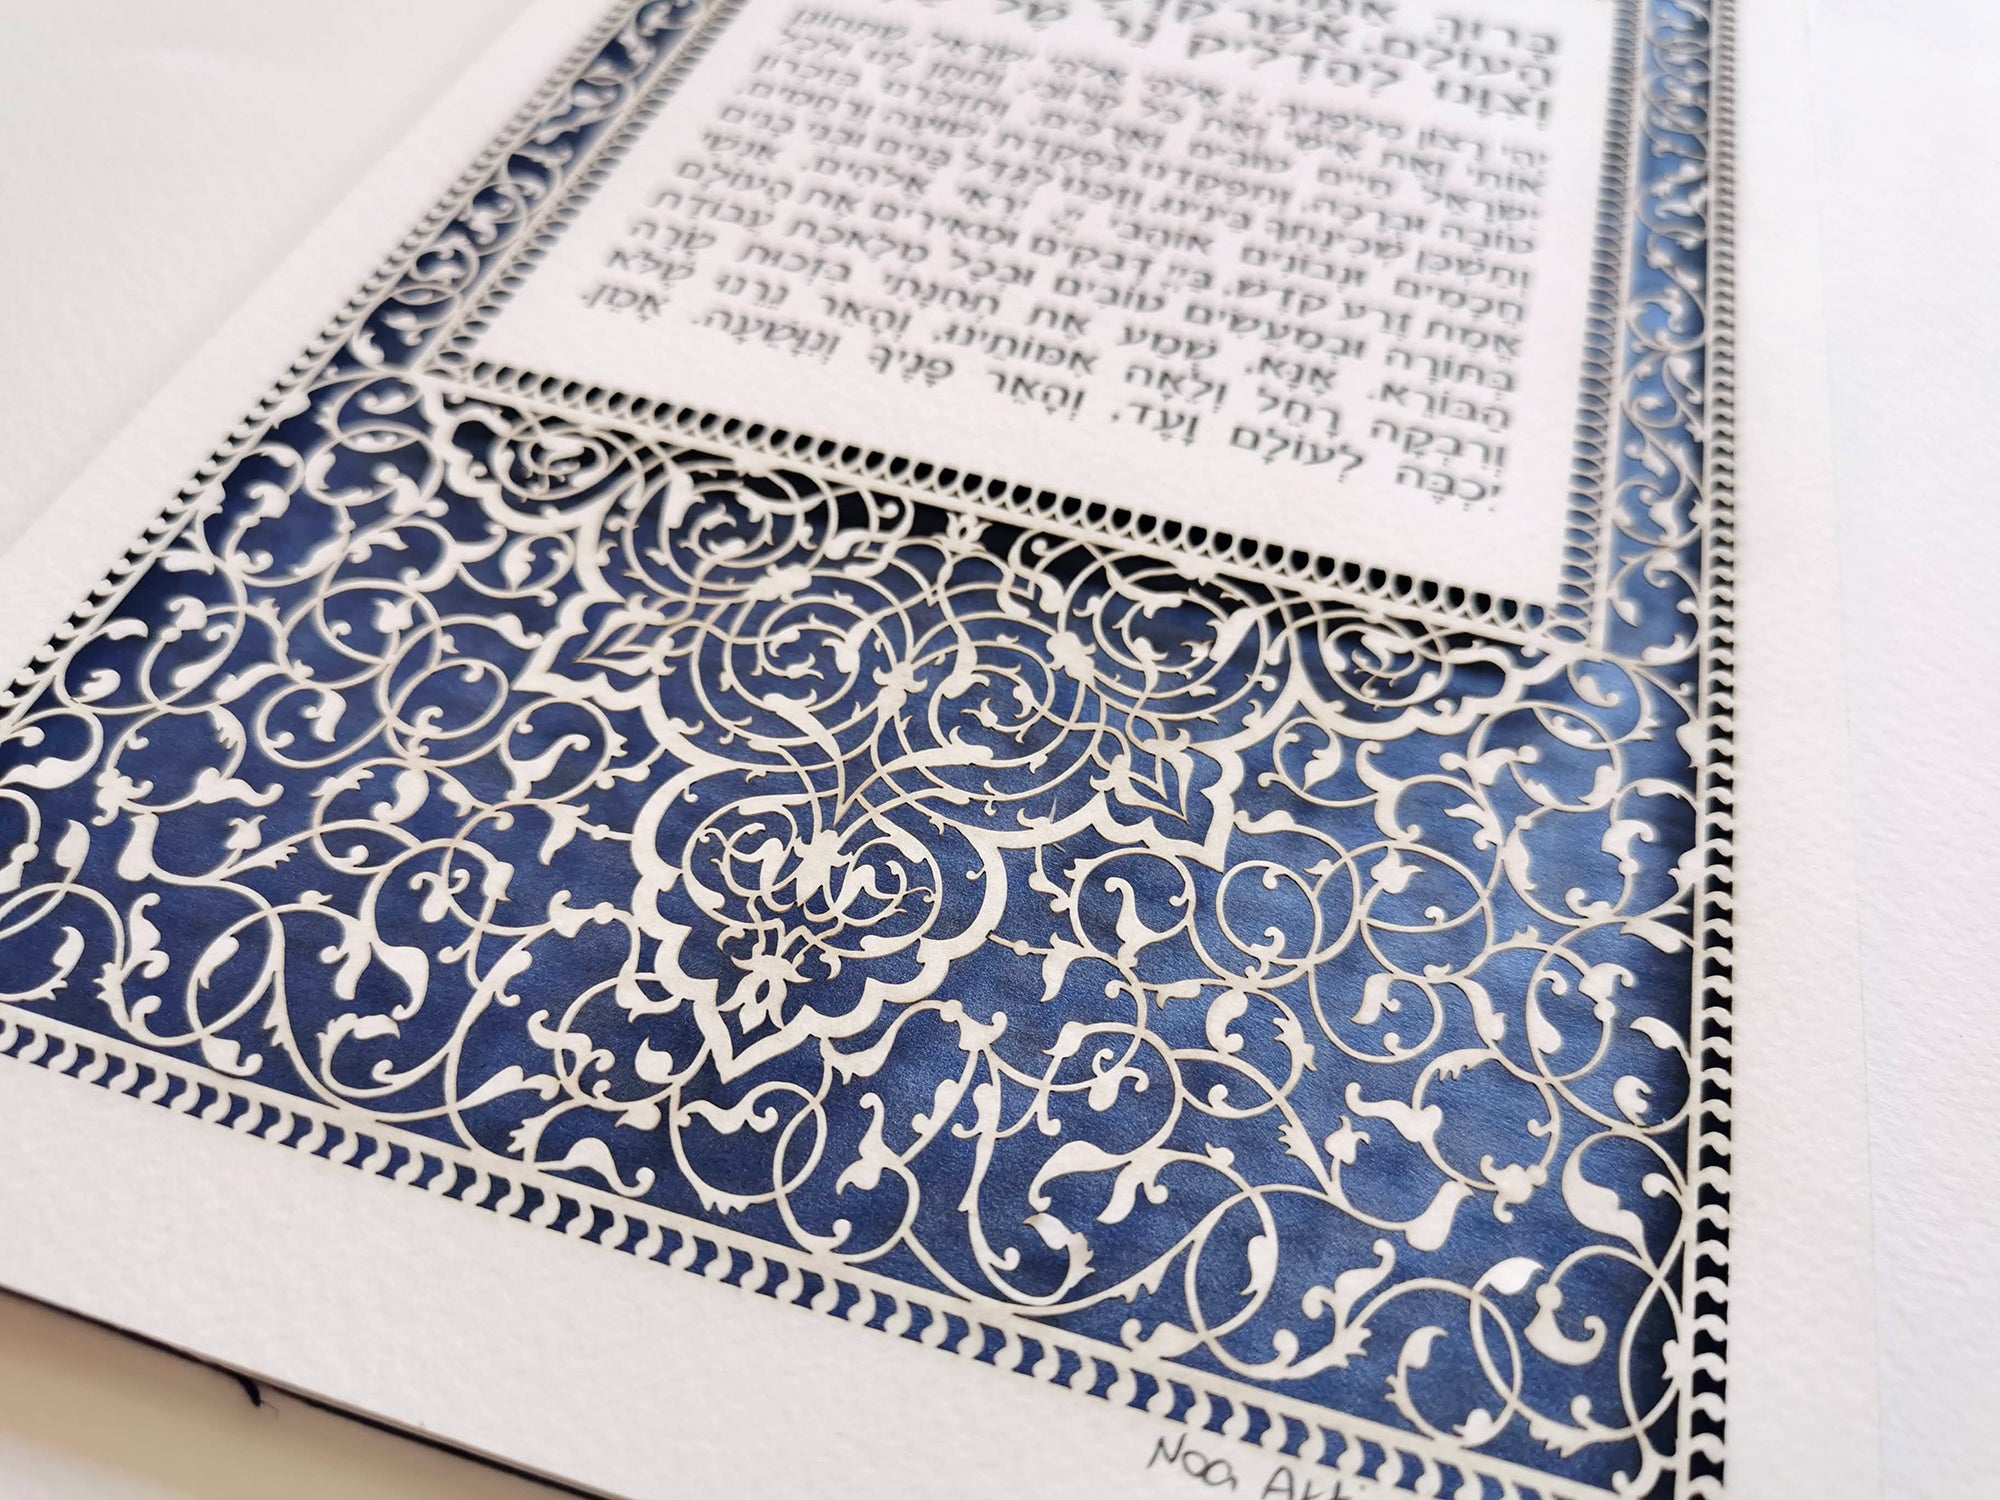 בָּרוּךְ
הָעוֹלָם, אֲשֶׁר
וְצִוָּנוּ לְהַדְלִיק נֵר שֶׁל
יְהִי רָצוֹן מִלְּפָנֶיךָ, יְיָ אֱלֹהַי וֵאלֹהֵי יִשְׂרָאֵל, שֶׁתְּחוֹנֵן
אוֹתִי וְאֶת אִישִׁי וְאֶת כָּל קְרוֹבַי, וְתִתֵּן לָנוּ וּלְכָל
יִשְׂרָאֵל חַיִּים טוֹבִים וַאֲרֻכִּים, וְתִזְכְּרֵנוּ בְּזִכְרוֹן
טוֹבָה וּבְרָכָה, וְתִפְקְדֵנוּ בִּפְקֻדַּת יְשׁוּעָה וְרַחֲמִים,
וְתַשְׁכֵּן שְׁכִינָתְךָ בֵּינֵינוּ, וְזַכֵּנוּ לְגַדֵּל בָּנִים וּבְנֵי בָנִים
חֲכָמִים וּנְבוֹנִים אוֹהֲבֵי יְיָ, יִרְאֵי אֱלֹהִים, אַנְשֵׁי
אֱמֶת זֶרַע קֹדֶשׁ, בַּייָ דְּבֵקִים וּמְאִירִים אֶת הָעוֹלָם
בְּתוֹרָה וּבְמַעֲשִׂים טוֹבִים וּבְכָל מְלֶאכֶת עֲבוֹדַת
הַבּוֹרֵא. אָנָּא, שְׁמַע אֶת תְּחִנָּתִי בִּזְכוּת שָׂרָה
וְרִבְקָה רָחֵל וְלֵאָה אִמּוֹתֵינוּ, וְהָאֵר נֵרֵנוּ שֶׁלֹּא
יִכְבֶּה לְעוֹלָם וָעֶד, וְהָאֵר פָּנֶיךָ וְנִוָּשֵׁעָה. אָמֵן.
Noa